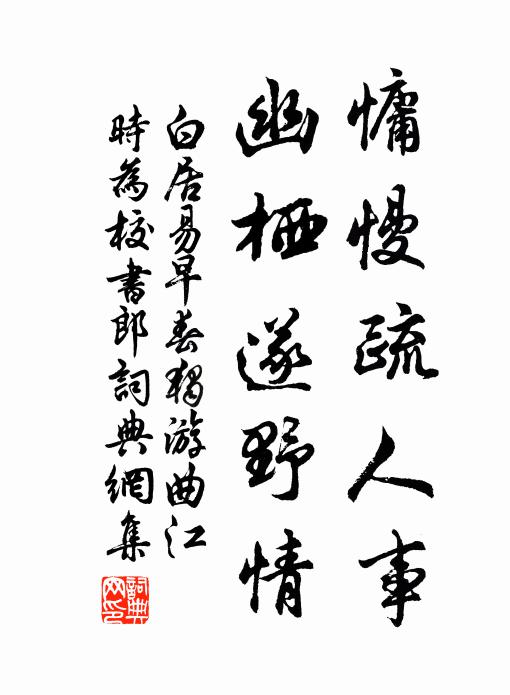 慵慢疏人事
幽栖遂野情
白居易早春獨游曲江
時為校書郎詞典網集
詞典网印